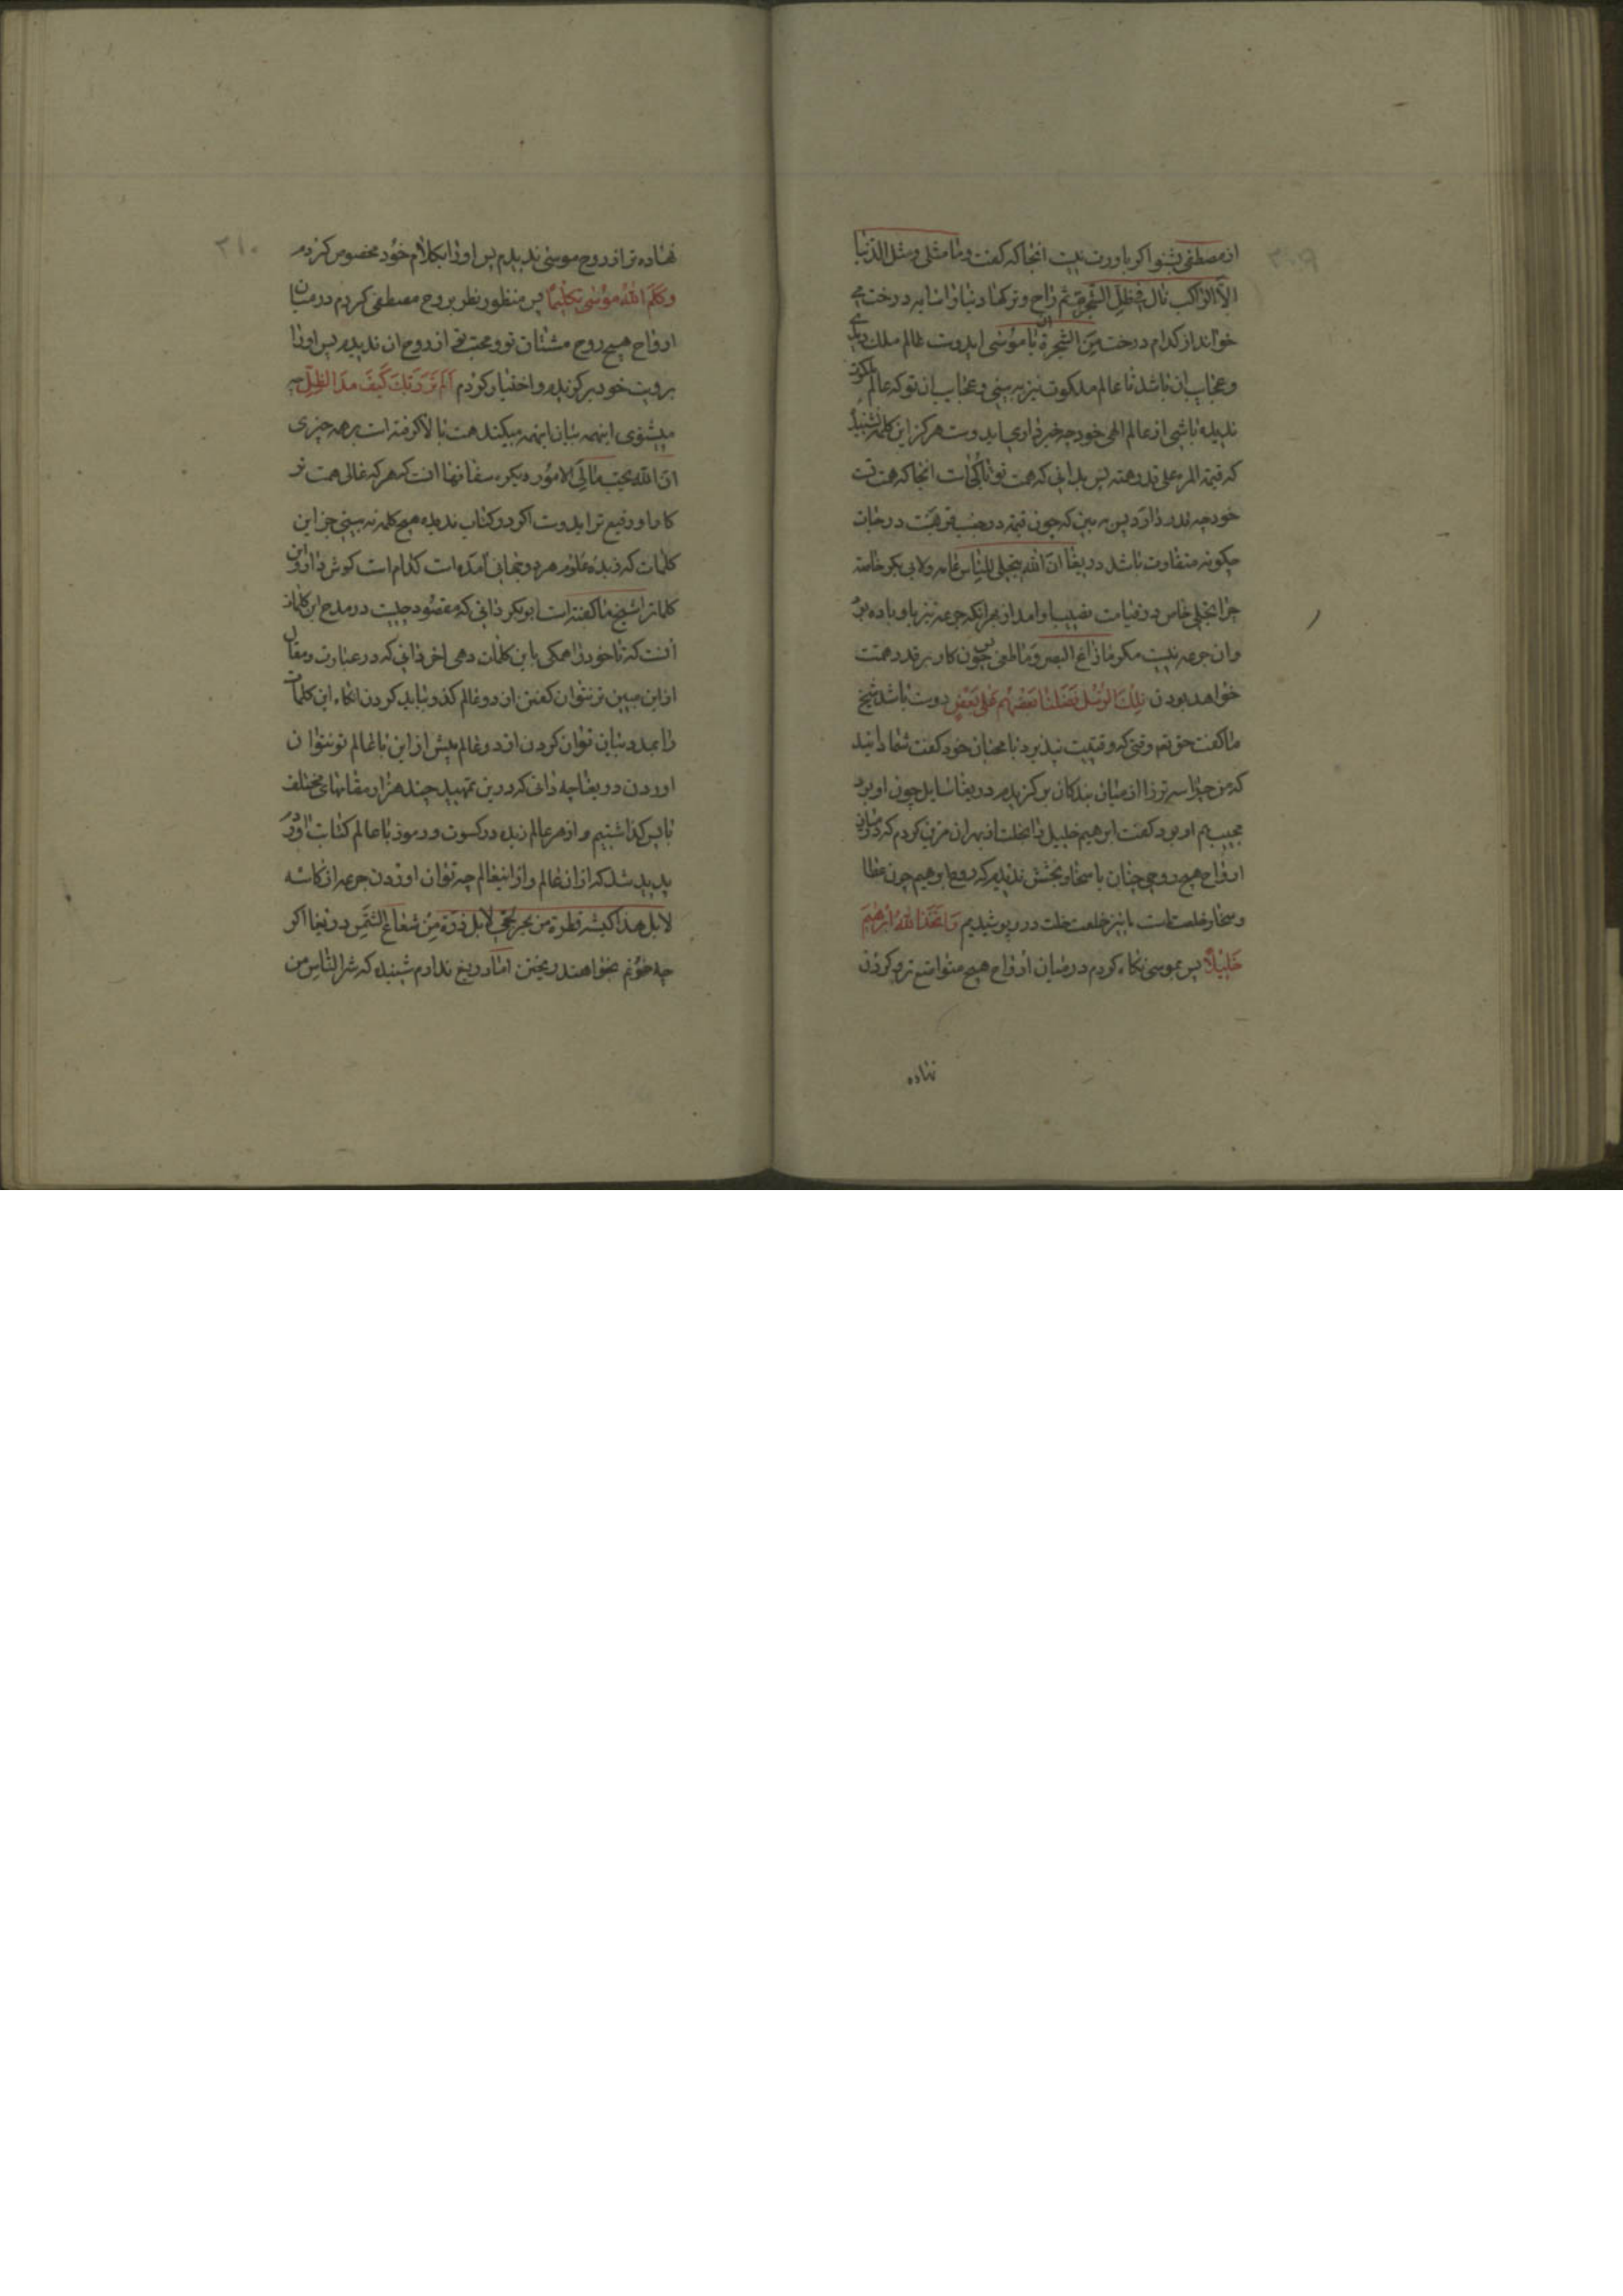 ۳۰۹
از مصطفی بشنو اکر باورت نیست انجا که کفت و ما مثلی و مثل الدنیا
الا کراکب نال فی ظل الشجرة ثم راح و ترکها دنیا را سایه درخت می
خواند از کدام درخت من الشجرة ان یا موسی ایدوست عالم ملک دیدی
و عجایب ان باشد تا عالم ملکوت نیز به بینی و عجایب ان تو که عالم ملکوت
ندیده باشی از عالم الهی خود چه خبر داری ایدوست هرکز این کلمه نشنیدی
که قیمة المرء علی قدر همته پس بدانی که همت تو تا کجاست انجا که همت تست
خود چه قدر دارد پس به بین که چون قیمة درجنب همت درجات
چکونه متفاوت باشد دریغا ان الله یتجلی للناس عامه ولابی بکر خاصة
چرا تجلی خاص در قیامت نصیب او امد از بهر انکه جرعه نیز با او داده بود
وان جرعه نیست مکر ما زاغ البصر و ما طغی پس چون کار بر قدر همت
خواهد بودن تِلْكَ الرُّسُلُ فَضَّلْنَا بَعْضَهُمْ عَلَى بَعْضٍ دوست باشد شیخ
ما کفت حق تع وقتی که وقتیت نپذیرد با محبان خود کفت شما دانید
که من چرا اسم ترا از میان بندکان برکزیدم دریغا سایل چون او بود
مجیب هم او بود کفت ابرهیم خلیل را بخلت از بهر ان مزین کردم که در میان
ارواح هیچ روحی چنان با سخا و بخشش ندیدم که روح ابرهیم چون عطا
و سخا و خلعت ماست ما نیز خلعت خلت در و پوشیدیم وَاتَّخَذَ اللهُ اِبْرٰهِیمَ
خَلِیْلًا پس بموسی نکاه کردم در میان ارواح هیچ متواضع تر و کردن
نهاده
۳۱۰
نهاده تر از روح موسی ندیدم پس او را بکلام خود مخصوص کردم
وَكَلَّمَ اللهُ مُوْسٰی تَكْلِیْمًا پس منظور نظر بروح مصطفی کردم در میان
ارواح هیچ روح مشتاق تر و محبت تر از روح ان ندیدم پس او را
برویت خود برکزیدم و اختیار کردم اَلَمْ تَرَ اِلٰی رَبِّكَ كَیْفَ مَدَّ الظِّلَّ چه
میشنوی اینهمه بیان اینهمه میکند همت بالا کرفته است بر همه چیزی
ان الله یحب معالی الامور ویکره سفسافها انست که هرکه عالی همت تر
کار او رفیع تر ایدوست اکر در کتاب ندیده هیچ کلمه نه بینی جز این
کلمات که زبده علوم هر دو جهانی امده است کدام است کوش دار و این
کلماتر شیخ ما کفته است ابوبکر دانی که مقصود چیست در مدح این کلمات
انست که تا خود را همکی باین کلمات دهی اخر دانی که در عبارت و مقال
از این مبین تر نتوان کفتن از دو عالم کذر باید کردن انکاه این کلمات
را بمدد بیان توان کردن از دو عالم بیش از این با عالم تو نتوان
اوردن دریغا چه دانی که درین تمهید چند هزار مقامهای مختلف
باپس کذاشتیم و از هر عالم زبده در کسوت و رموز با عالم کتابت اورد
پدید شد که از ان عالم و از اینعالم چه توان اوردن جرعه از کاسه
لا بل هذا کبشه قطرة من بحر لجی لا بل ذرة من شعاع الشمس دریغا اکر
چه خونم بخواهند ریختن اما دریغ ندارم شنیده که شر الناس من